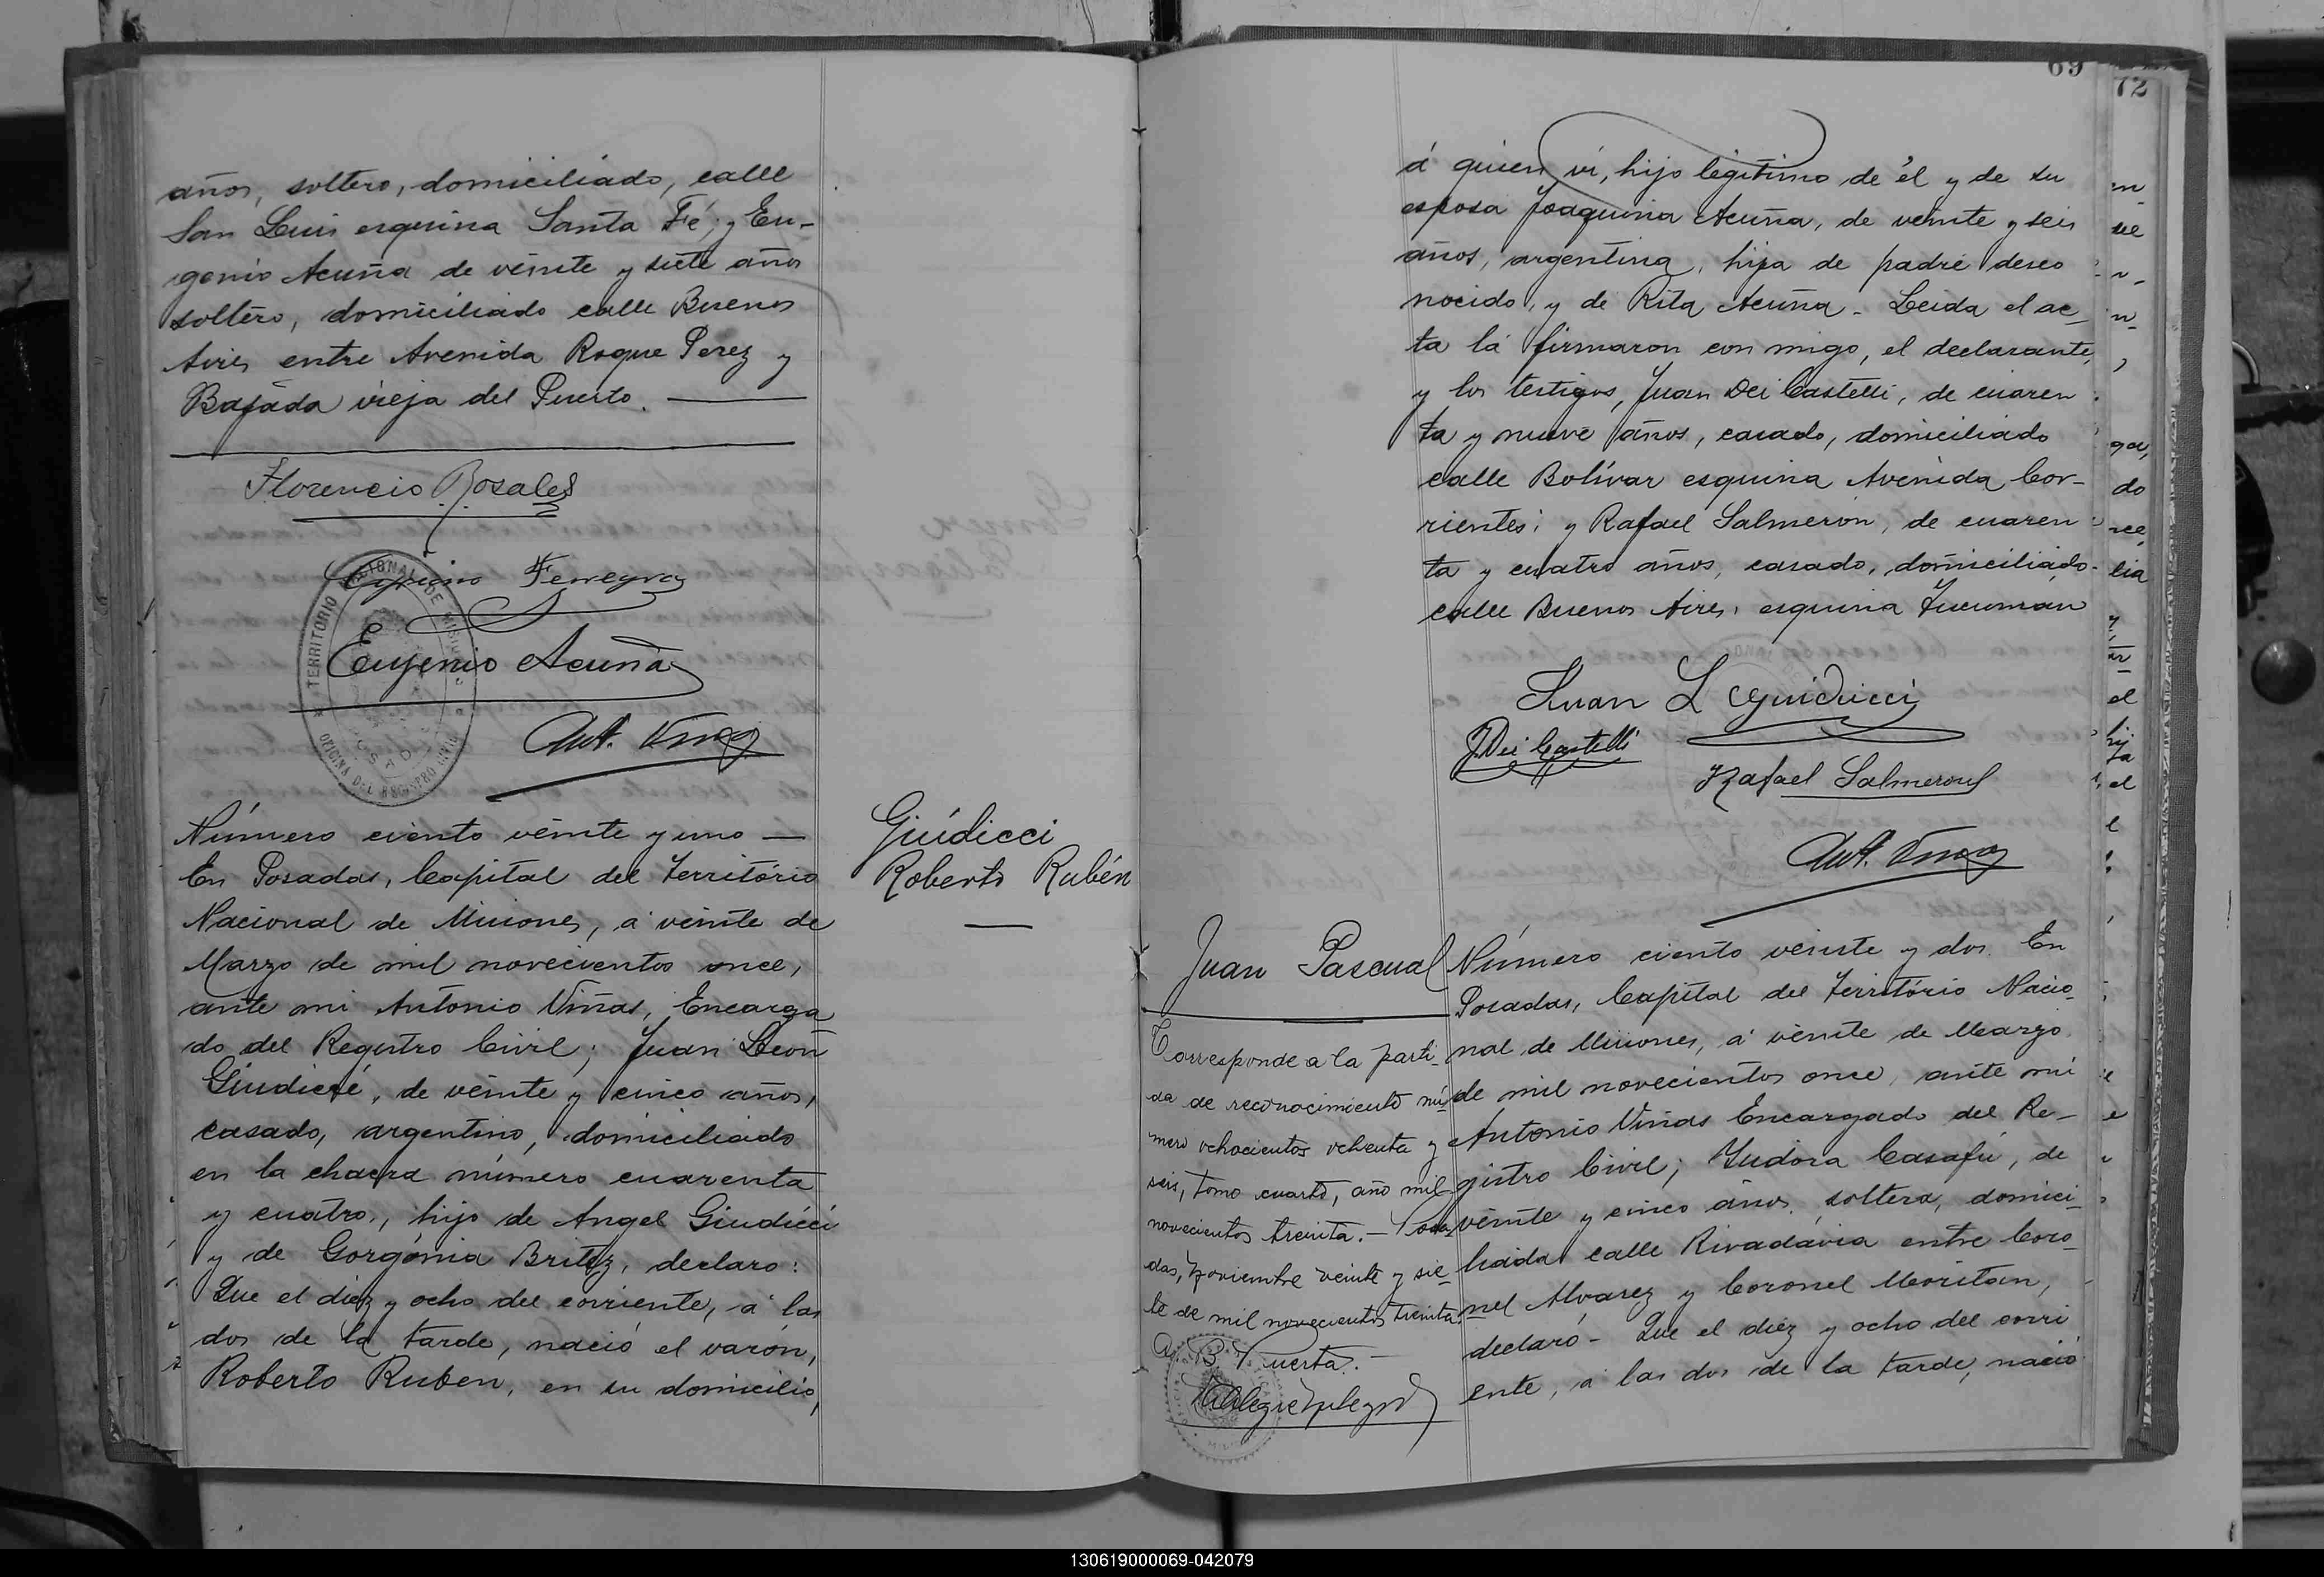 años, soltero, domiciliado, calle
San Luis esquina Santa Fé; y Eu-
genio Acuña de veinte y siete años
soltero, domiciliado calle Buenos
Aires entre Avenida Roque Perez y
Bajada vieja del Puerto.
Florencio Rosales
Cipriano Ferreyra
Eugenio Acuña
Ant. Vinas
TERRITORIO NACIONAL DE MISIONES
OFICINA DEL REGISTRO CIVIL
Número ciento veinte y uno —
En Posadas, Capital del Território
Nacional de Misiones, á veinte de
Marzo de mil novecientos once,
ante mi Antonio Viñas, Encarga
do del Registro Civil; Juan Leon
Giudicci, de veinte y cinco años,
casado, argentino, domiciliado
en la chacra número cuarenta
y cuatro, hijo de Angel Giudicci
y de Gorgónia Britez, declaro:
Que el diez y ocho del corriente, á las
dos de la tarde, nació el varon,
Roberto Ruben, en su domicilio,
Giúdicci
Roberto Rubén
69
72
á quien vi, hijo legítimo de él y de su
esposa Joaquina Acuña, de veinte y seis
años, argentina, hija de padre desco
nocido, y de Rita Acuña. Leida el ac-
ta la firmaron con migo, el declarante,
y los testigos, Juan Dei Castelli, de cuaren
ta y nueve años, casado, domiciliado
calle Bolívar esquina Avenida Cor-
rientes; y Rafael Salmerón, de cuaren
ta y cuatro años, casado, domiciliado
calle Buenos Aires, esquina Tucuman
Juan L Guiducci
J. Dei Castelli
Rafael Salmeron
Ant. Vinas
Juan Pascual
Corresponde a la parti-
da de reconocimiento nú-
mero ochocientos ochenta y
seis, tomo cuarto, año mil
novecientos treinta.- Posa-
das, noviembre veinte y sie-
te de mil novecientos treinta.
Número ciento veinte y dos. En
Posadas, Capital del Território Nacio-
nal de Misiones, á veinte de Marzo
de mil novecientos once, ante mi
Antonio Viñas Encargado del Re-
gistro Civil; Yudora Casafú, de
veinte y cinco años, soltera, domici-
liada calle Rivadavia entre Coro-
nel Alvarez y Coronel Moritan,
declaró- Que el diez y ocho del corri
ente, á las dos de la tarde, nació
130619000069-042079